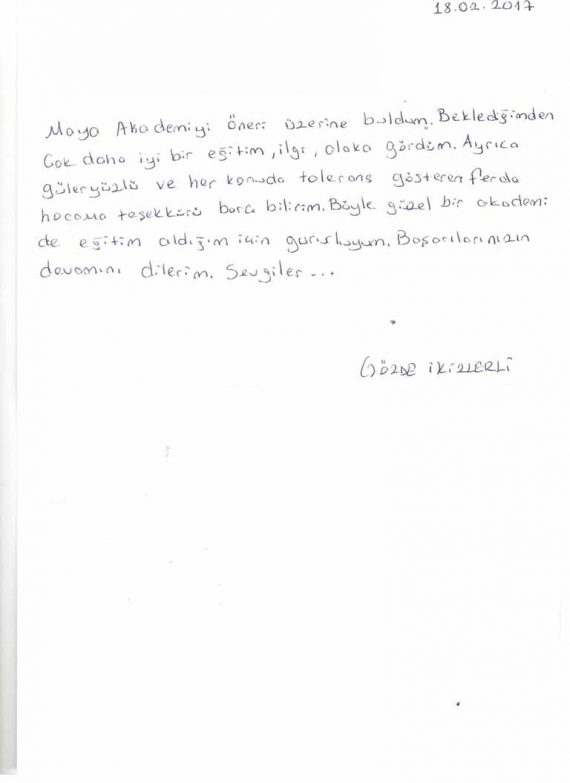 18.02.2017
Maya Akademiyi öneri üzerine buldum. Beklediğimden
Çok daha iyi bir eğitim, ilgi, alaka gördüm. Ayrıca
güleryüzlü ve her konuda tolerans gösteren Ferda
hocama teşekkürü borç bilirim. Böyle güzel bir akademi
de eğitim aldığım için gururluyum. Başarılarınızın
devamını dilerim. Sevgiler...
GÖZDE İKİZLERLİ